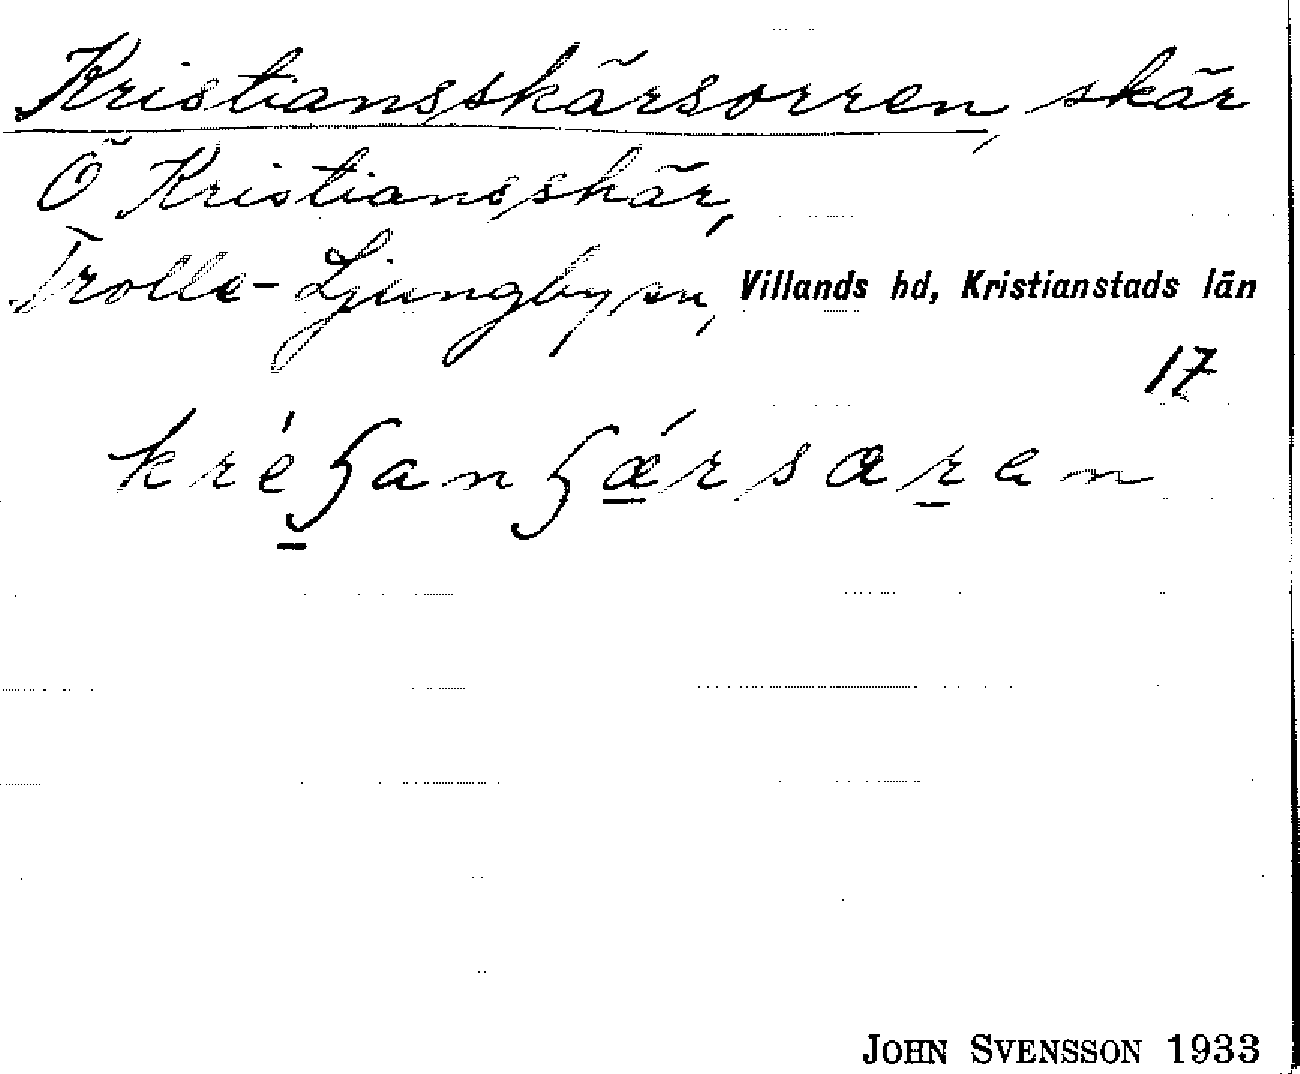 Kristiansskärsorren, skär
Ö Kristiansskär,
Trolle-Ljungby sn, Villands hd, Kristianstads län
17
JOHN SVENSSON 1933